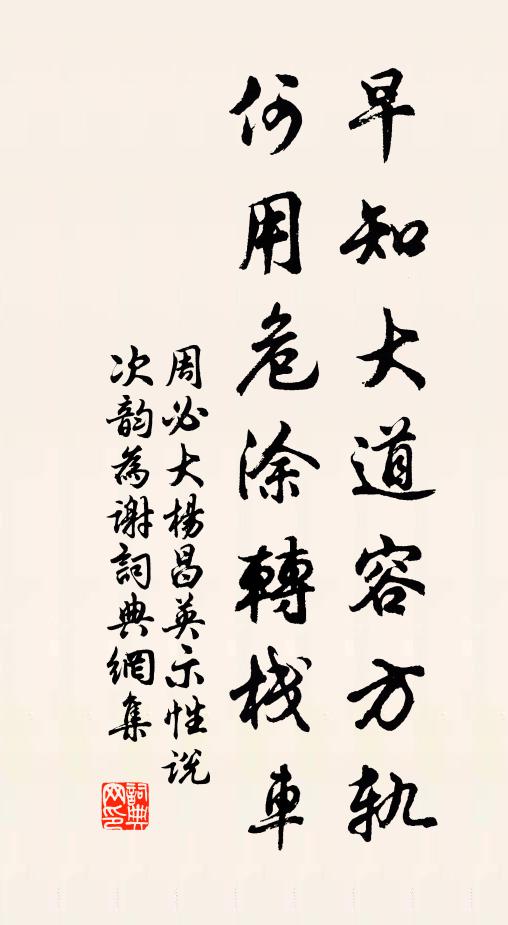 早知大道容方軌
何用危涂轉栈車
周必大楊昌英示性説
次韵為謝詞典網集
詞典网印